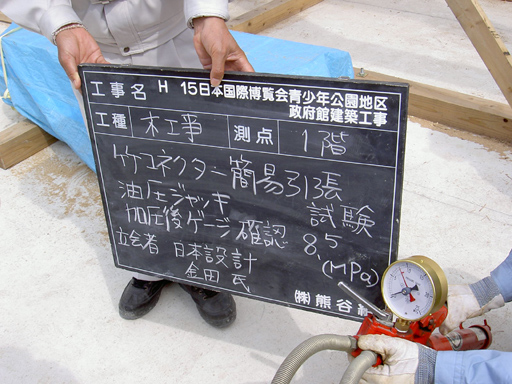 工事名 H 15日本国際博覧会青少年公園地区
政府館建築工事
工種 木工事 測点 1階
竹コネクター簡易引張
試験
油圧ジャッキ
加圧後ゲージ確認 8.5
(MPa)
立会者 日本設計
金田氏
㈱熊谷